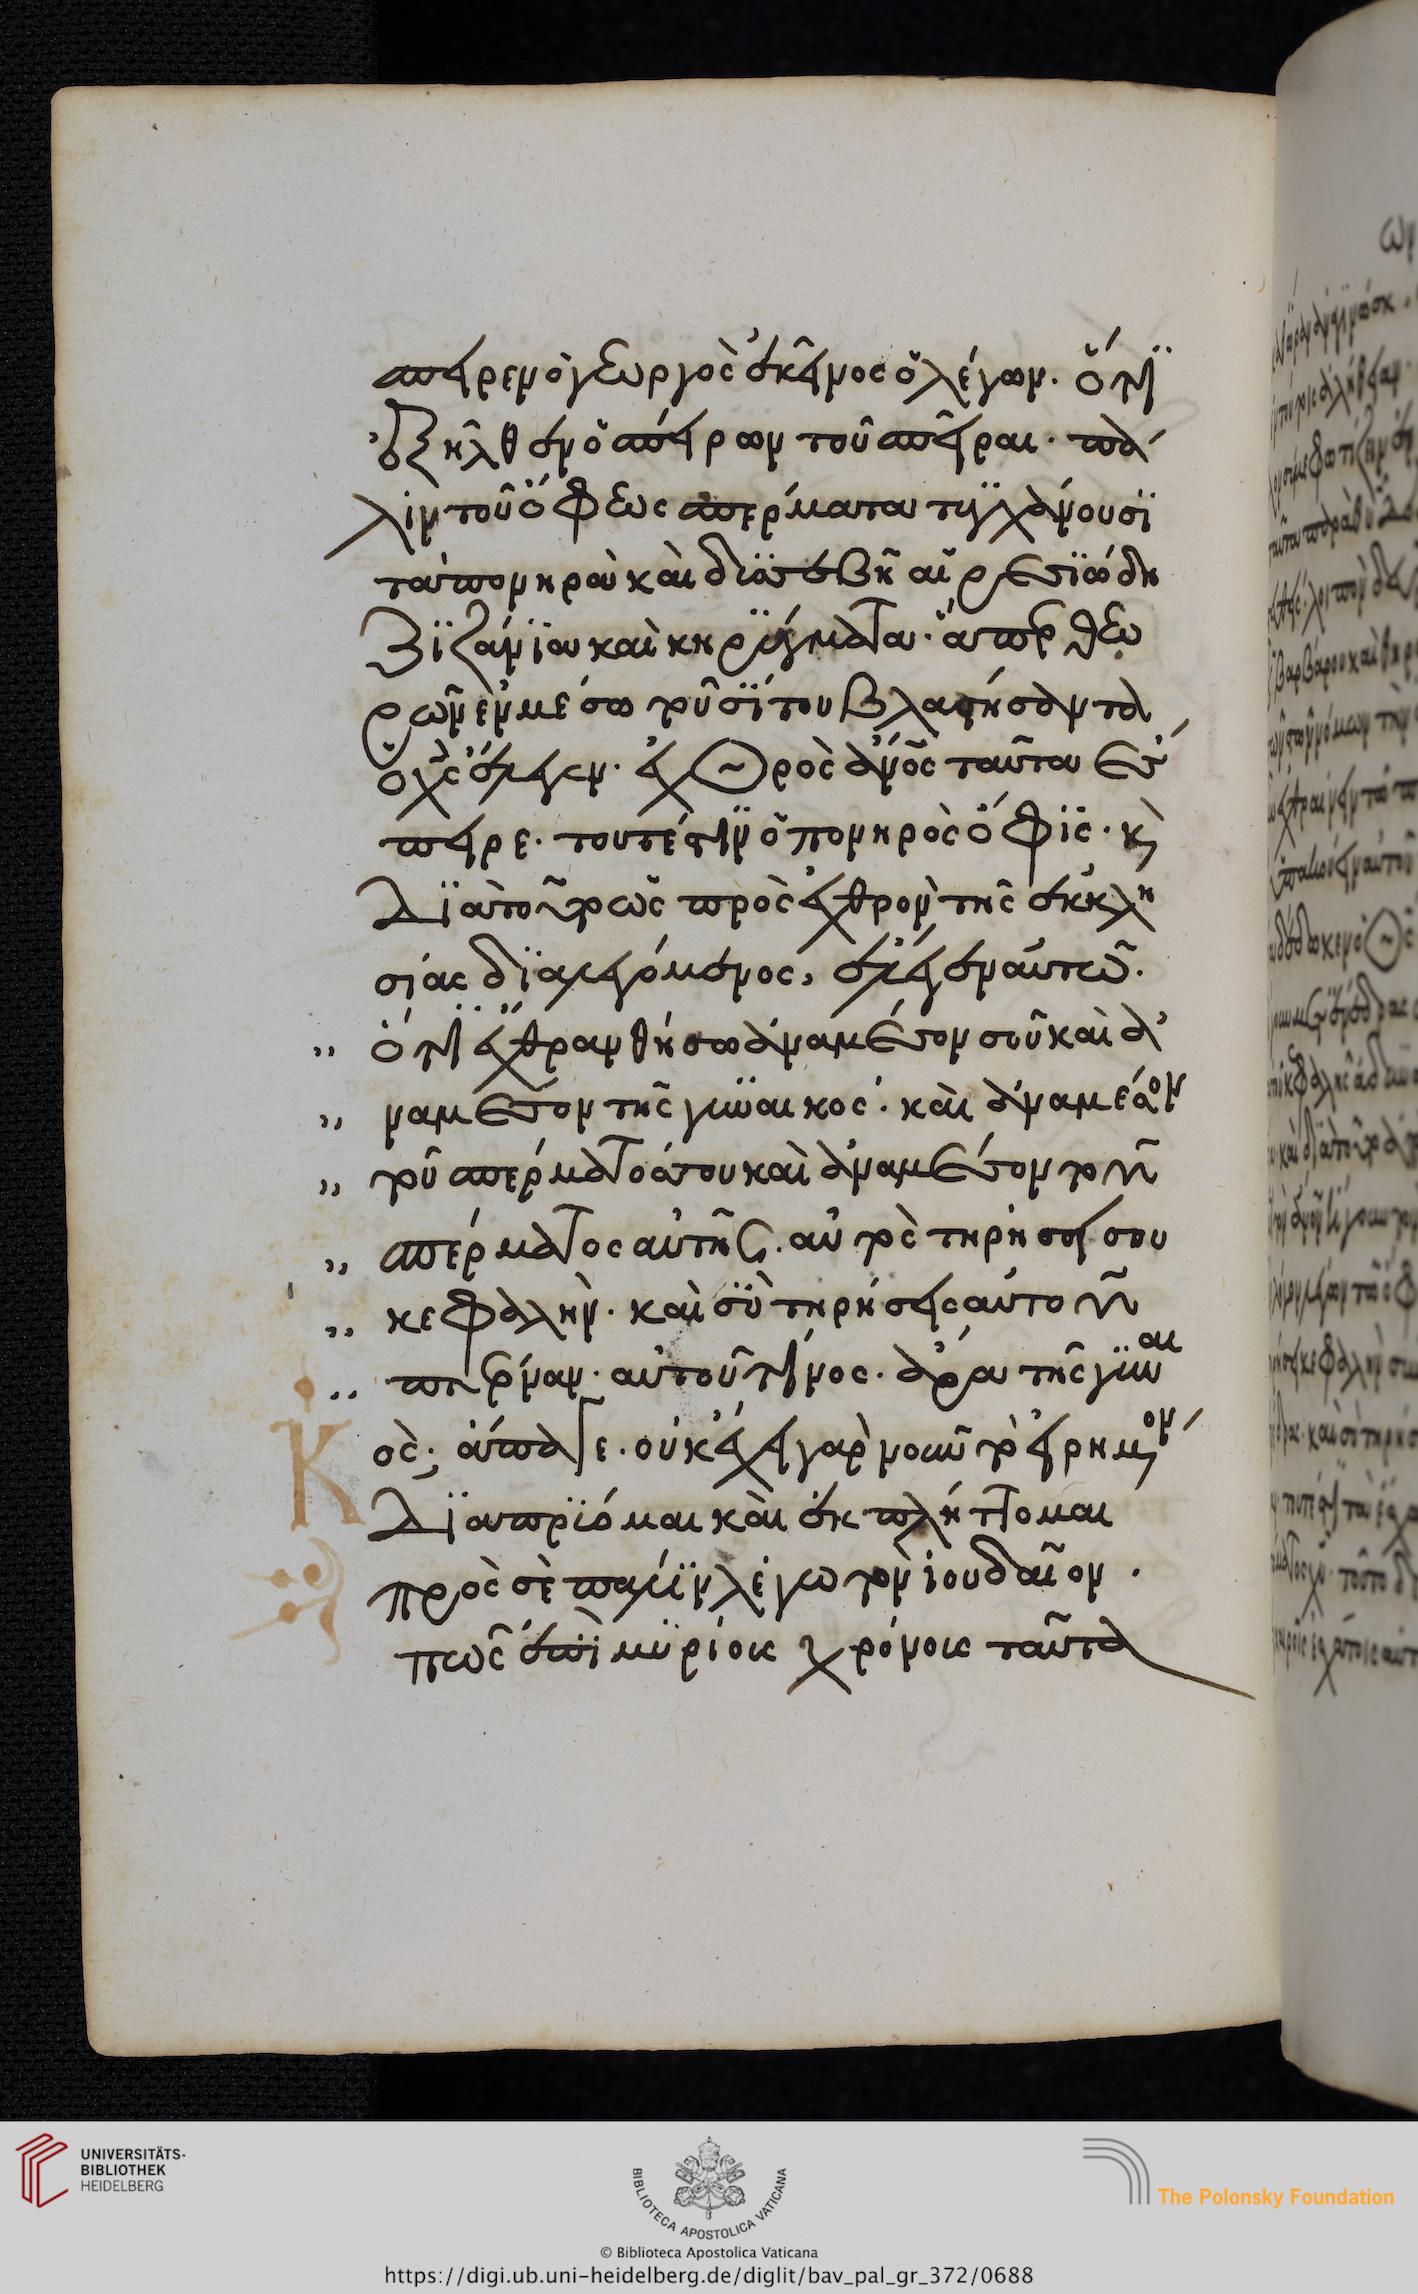 σπειρεν ὁ γεωργὸς ἐκεῖνος ὁ λέγων. ὅτι
ἐξῆλθεν ὁ σπείρων τοῦ σπεῖραι. πά
λιν τοῦ ὄφεως σπέρματα τυγχάνουσι
τὰ πονηρὰ καὶ
ζιζάνια καὶ κηρύγματα. ἅπερ θεω
ρῶν ἐν μέσω τοῦ σίτου βλαστήσαντα
ὁ χς ἔλεγεν. ἐχθρὸς ἀνος ταῦτα ἔσ
πειρε. τουτέστιν ὁ πονηρὸς ὄφις. κὶ
διατοῦτο ὡς πρὸς ἐχθρὸν τῆς ἐκκλη
σίας διαλεγόμενος, ἔλεγεν αὐτῶ.
„ ὅτι ἔχθραν θήσω ἀναμέσον σοῦ καὶ ἀ
„ ναμέσον τῆς γυναικός. καὶ ἀναμέσον
„ τοῦ σπέρματός σου καὶ ἀναμέσον τοῦ
„ σπέρματος αὐτῆς. αὐτός τηρήσει σου
„ κεφαλήν. καὶ σὺ τηρήσεις αὐτοῦ
„ πτέρναν. αὐτοῦ τίνος. ἄρα τῆς γυναι
Κ κός; ἄπαγε. οὐκ ἔχει γὰρ νοῦν τὸ εἰρημένον
διαπορούμαι καὶ ἐκπλήττομαι
πρὸς σὲ πάλιν λέγω τὸν ἰουδαῖον.
πῶς ἐπὶ μυρίοις χρόνοις ταῦτα
UNIVERSITÄTS-
BIBLIOTHEK
HEIDELBERG
BIBLIOTECA APOSTOLICA VATICANA
The Polonsky Foundation
© Biblioteca Apostolica Vaticana
https://digi.ub.uni-heidelberg.de/diglit/bav_pal_gr_372/0688